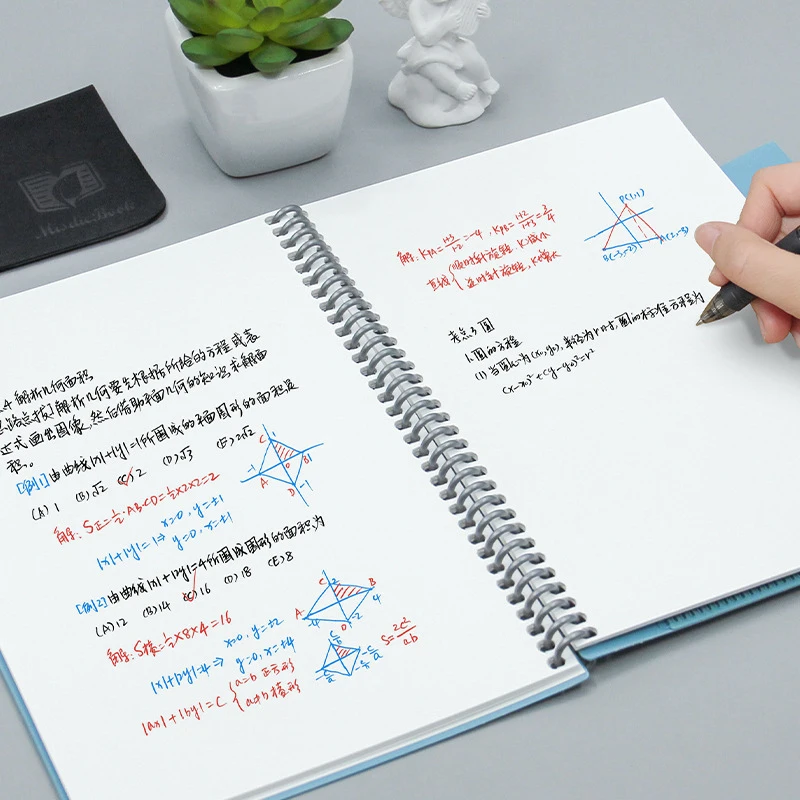 4 解析几何面积
思路点拨] 解析几何要先根据所给的方程或表
达式画出图像,然后借助平面几何的知识求解面
积。
[例1] 由曲线|x|+|y|=1所围成的平面图形的面积是
(A) 1 (B) √2 (C) 2 (D) √3 (E) 2√2
解: S正=½·AB·CD=½×2×2=2
|x|+|y|=1⇒ x=0, y=±1
y=0, x=±1
C 1
-1 A O B 1
D -1
[例2] 由曲线|x|+|2y|=4所围成图形的面积为
(A) 12 (B) 14 (C) 16 (D) 18 (E) 8
解: S菱=½×8×4=16
|x|+|2y|=4⇒ x=0, y=±2
y=0, x=±4
|ax|+|by|=C { a=b 正方形
a≠b 菱形
C 2 B
A -4 4
D -2
S=2c²/ab
解: KPA=(1+3)/(1-2)=-4, KPB=(1+2)/(1+3)=3/4
直线 { 顺时针旋转, K减小
逆时针旋转, K增大
P(1,1)
B(-3,-2) A(2,-3)
考点3 圆
1.圆的方程
(1) 当圆心为(x₀,y₀), 半径为r时,圆的标准方程为
(x-x₀)²+(y-y₀)²=r²